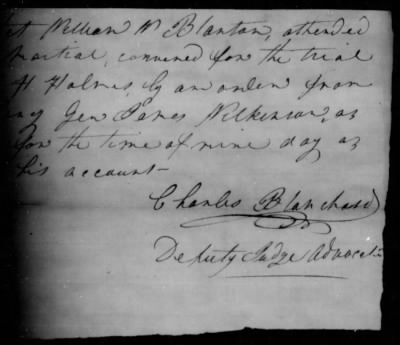 William W Blanton, attended
Martial, convened for the trial
H Holmes, by an order from
Gen James Wilkinson, as
for the time of nine day as
his account—
Charles Blanchard
Deputy Judge Advocate